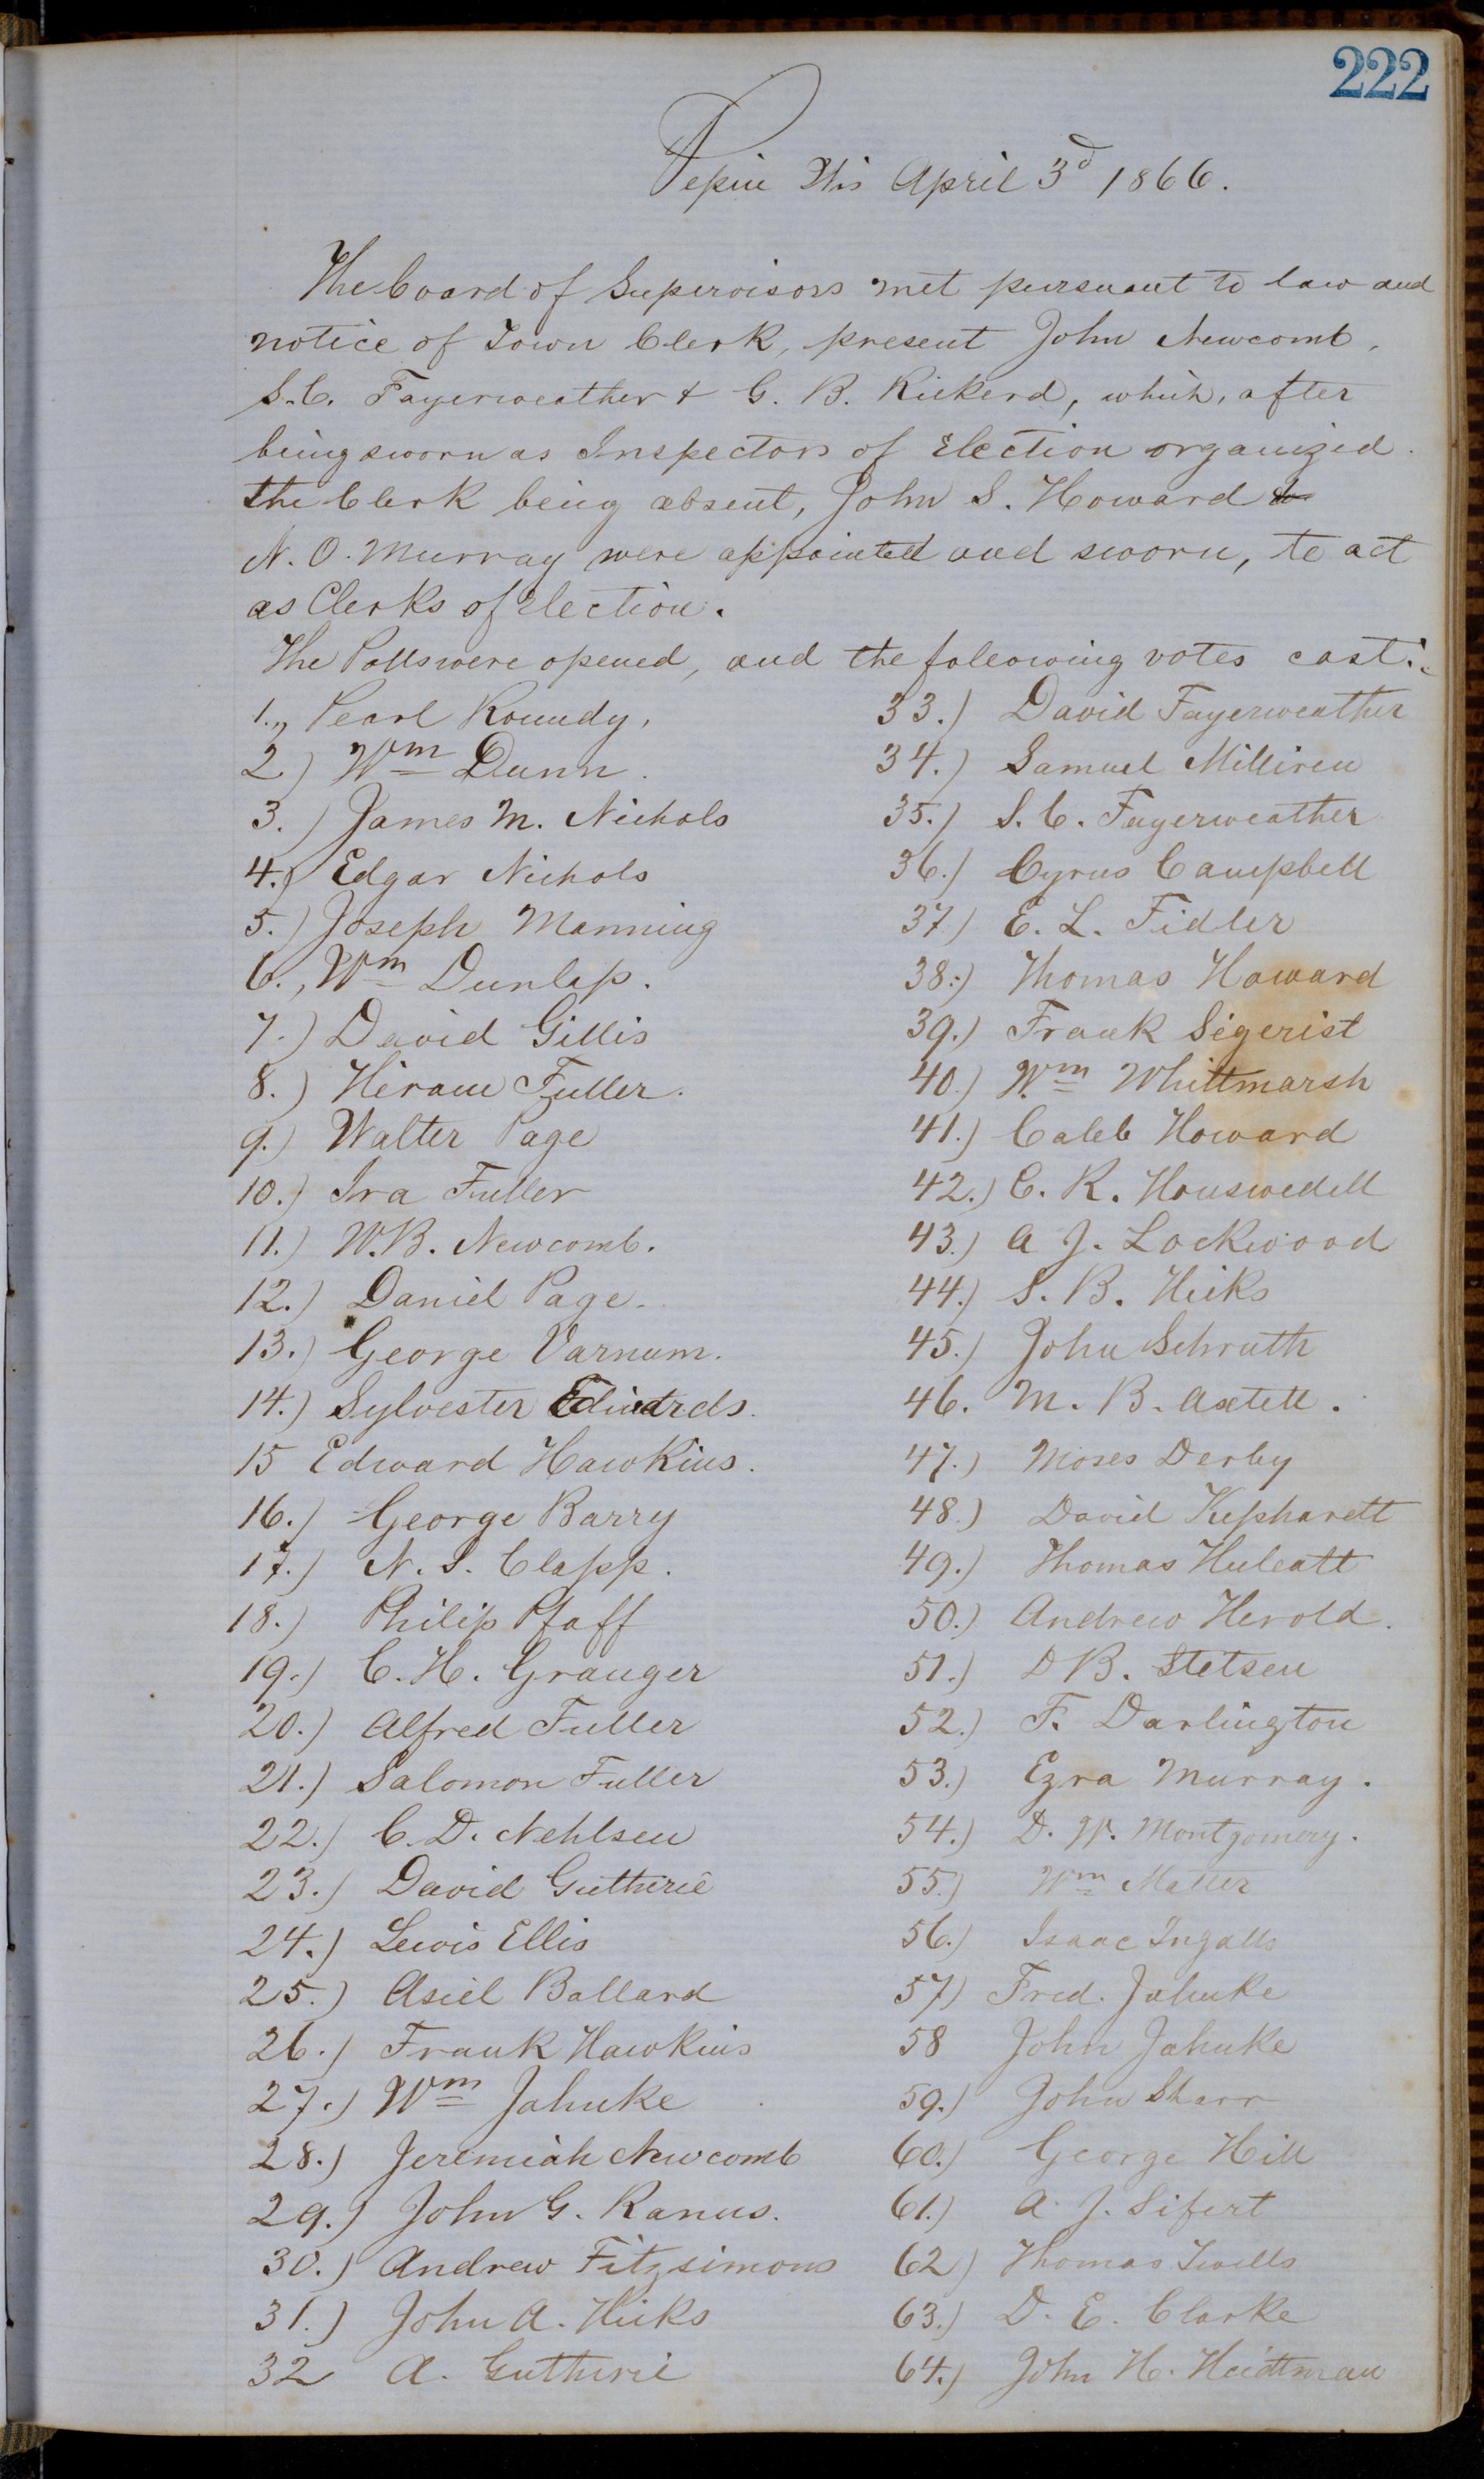 222
Pepin Wis April 3d 1866.
The board of Supervisors met pursuant to law and
notice of Town Clerk, present John Newcomb,
S.C. Fayerweather & G. B. Rickerd, which, after
being sworn as Inspectors of Election organized.
the Clerk being absent, John S. Howard &
N. O. Murray were appointed and sworn, to act
as Clerks of Election.
The Polls were opened, and the following votes cast:
1., Pearl Roundy,
2.) Wm Dunn.
3.) James M. Nichols
4.) Edgar Nichols
5.) Joseph Manning
6., Wm Dunlap.
7.) David Gillis
8.) Hiram Fuller.
9.) Walter Page
10.) Ira Fuller
11.) W.B. Newcomb.
12.) Daniel Page.
13.) George Varnum.
14.) Sylvester Edwards.
15 Edward Hawkins.
16.) George Barry
17.) N. S. Clapp.
18.) Philip Pfaff
19.) C. H. Granger
20.) Alfred Fuller
21.) Salomon Fuller
22.) C. D. Nehlsen
23.) David Guthrie
24.) Lewis Ellis
25.) Asiel Ballard
26.) Frank Hawkins
27.) Wm Jahnke
28.) Jeremiah Newcomb
29.) John G. Ranus.
30.) Andrew Fitzsimons
31.) John A. Hicks
32 A. Guthrie
33.) David Fayerweather
34.) Samuel Milliren
35.) S. C. Fayerweather
36.) Cyrus Campbell
37) E. L. Fidler
38.) Thomas Howard
39.) Frank Sigerist
40.) Wm Whittmarsh
41.) Caleb Howard
42.) C. R. Houswedell
43.) A J. Lockwood
44.) S. B. Hicks
45.) John Schruth
46. M. B. Axtell.
47.) Moses Derby
48.) David Kephartt
49.) Thomas Huleatt
50.) Andrew Herold.
51.) D B. Stetsen
52.) F. Darlington
53.) Ezra Murray.
54.) D. W. Montgomery.
55.) Wm
56.) Isaac Ingalls
57) Fred. Jahnke
58 John Jahnke
59.) John Starr
60.) George Hill
61.) A. J. Sifert
62) Thomas
63.) D. E. Clarke
64.) John H. Heidtman